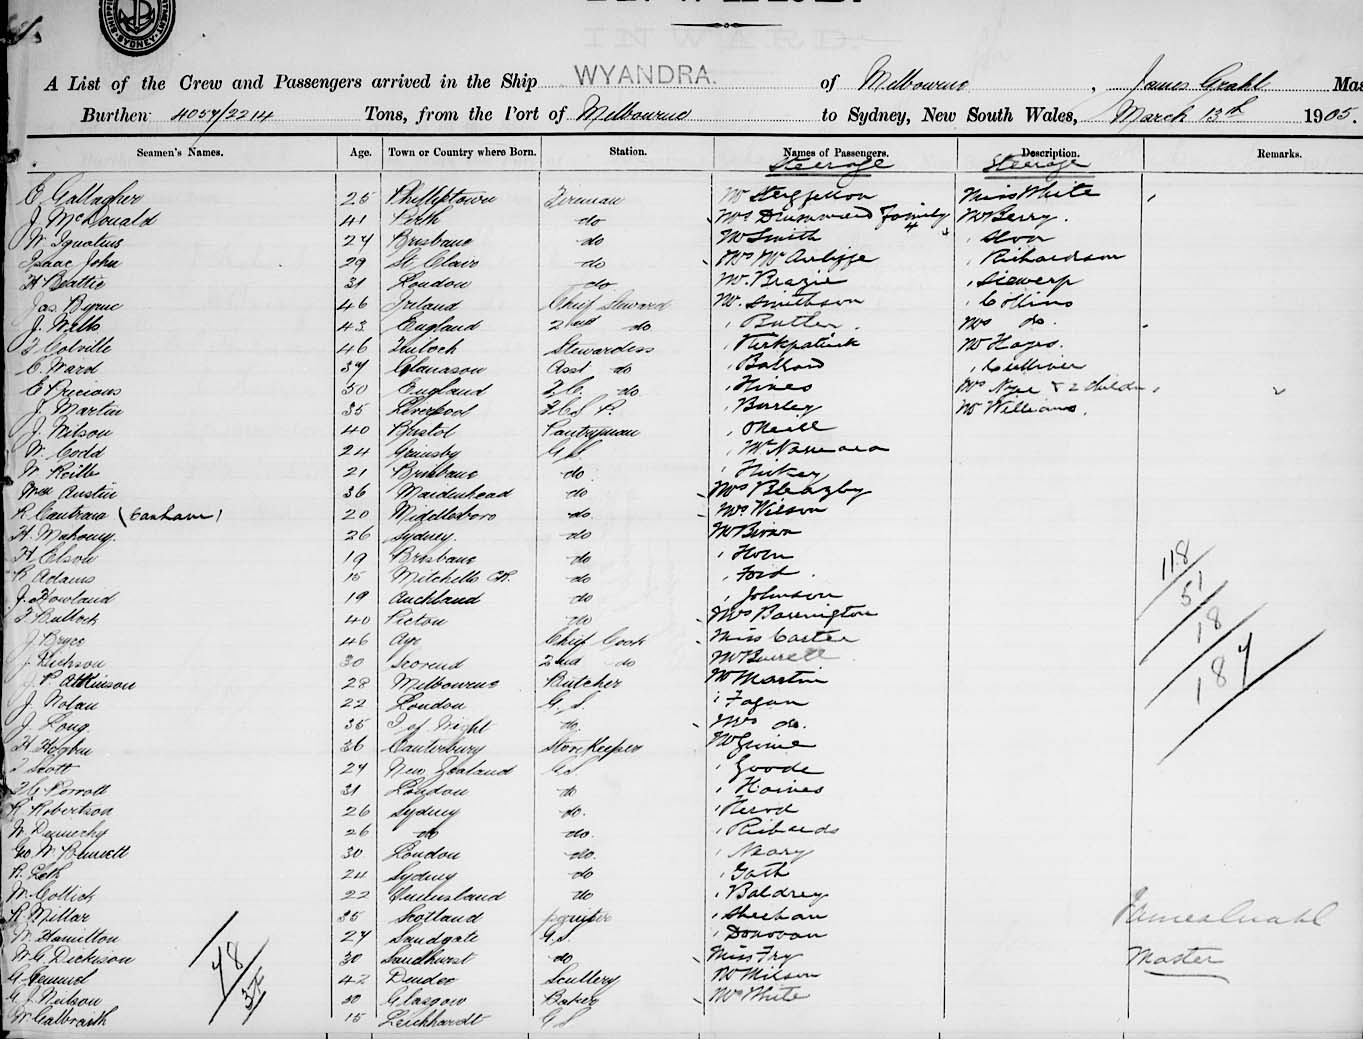 INWARD.
A List of the Crew and Passengers arrived in the Ship WYANDRA. of Melbourne, James Grahl Mas
Burthen 4057/2214 Tons, from the Port of Melbourne to Sydney, New South Wales, March 13th 1905.
Seamen's Names. Age. Town or Country where Born. Station. Names of Passengers. Description. Remarks.
Steerage Steerage
E Gallagher 25 Phillipstown Fireman Mr Miss White
J. McDonald 41 Perth do Mrs Drummond Family 4 Mr Berry.
W. Ignatius 27 Brisbane do Mr Smith
Isaac John 29 St Clair do Mrs McAuliffe " Richardson
H Beattie 31 London do Mr. Brazie
Jas Byrne 46 Ireland Chief Steward Mr. Smithson " Collins
J. Wells 43 England 2nd do " Butler. Mrs do.
46 Stewardess " Kirkpatrick Mr Hayes.
C. Ward 37 Asst do " Ballard
E Precious 30 England do " Hines Mrs Nyee & 2 childn
J. Martin 35 Liverpool " Burley Mr Williams.
J. Wilson 40 Bristol Pantryman " ONeill
W. Codd 24 Grimsby G.S. " McNamara
21 Brisbane do. " Hickey
Austin 36 Maidenhead do Mrs Bleazby
R. (Canham) 20 Middlesboro do. Mrs Wilson
H. Mahoney. 26 Sydney. do Mr Brown
H Elson 19 Brisbane do " Horn
R Adams 15 do " Ford.
J. Rowland 19 Auckland do " Johnson
Bullock 40 Picton do Mrs Barrington
J Bryce 46 Ayr Chief Cook Miss Carter
J. 30 2nd do Mr Burrell
J. P. Atkinson 28 Melbourne Butcher Mr Martin
J. Nolan 22 London G.S. " Fagan
J. Long. 35 I of Wight do. Mrs do.
H Hogben 36 Canterbury StoreKeeper Mr
Scott 27 New Zealand G.S. " Goode
31 London do " Haines
R Robertson 26 Sydney do. " Herod
W. 26 do do. " Richards
Geo. W. Bennett 30. London do. " Neary
24 Sydney do " Gath
W. Collick 22 Queensland do " Baldrey
R Millar 35 Scotland " Sheehan
W. Hamilton 27 Sandgate G.S. " Donovan
W. G. Dickson 30 Sandhurst do Miss Fry
G Gemmel 42 Dundee Scullery Mr Wilson
G. J. Neilson 30 Glasgow Baker Mrs White
W Galbraith 15 Leichhardt G S
118
51
18
187
78
37
James Grahl
Master